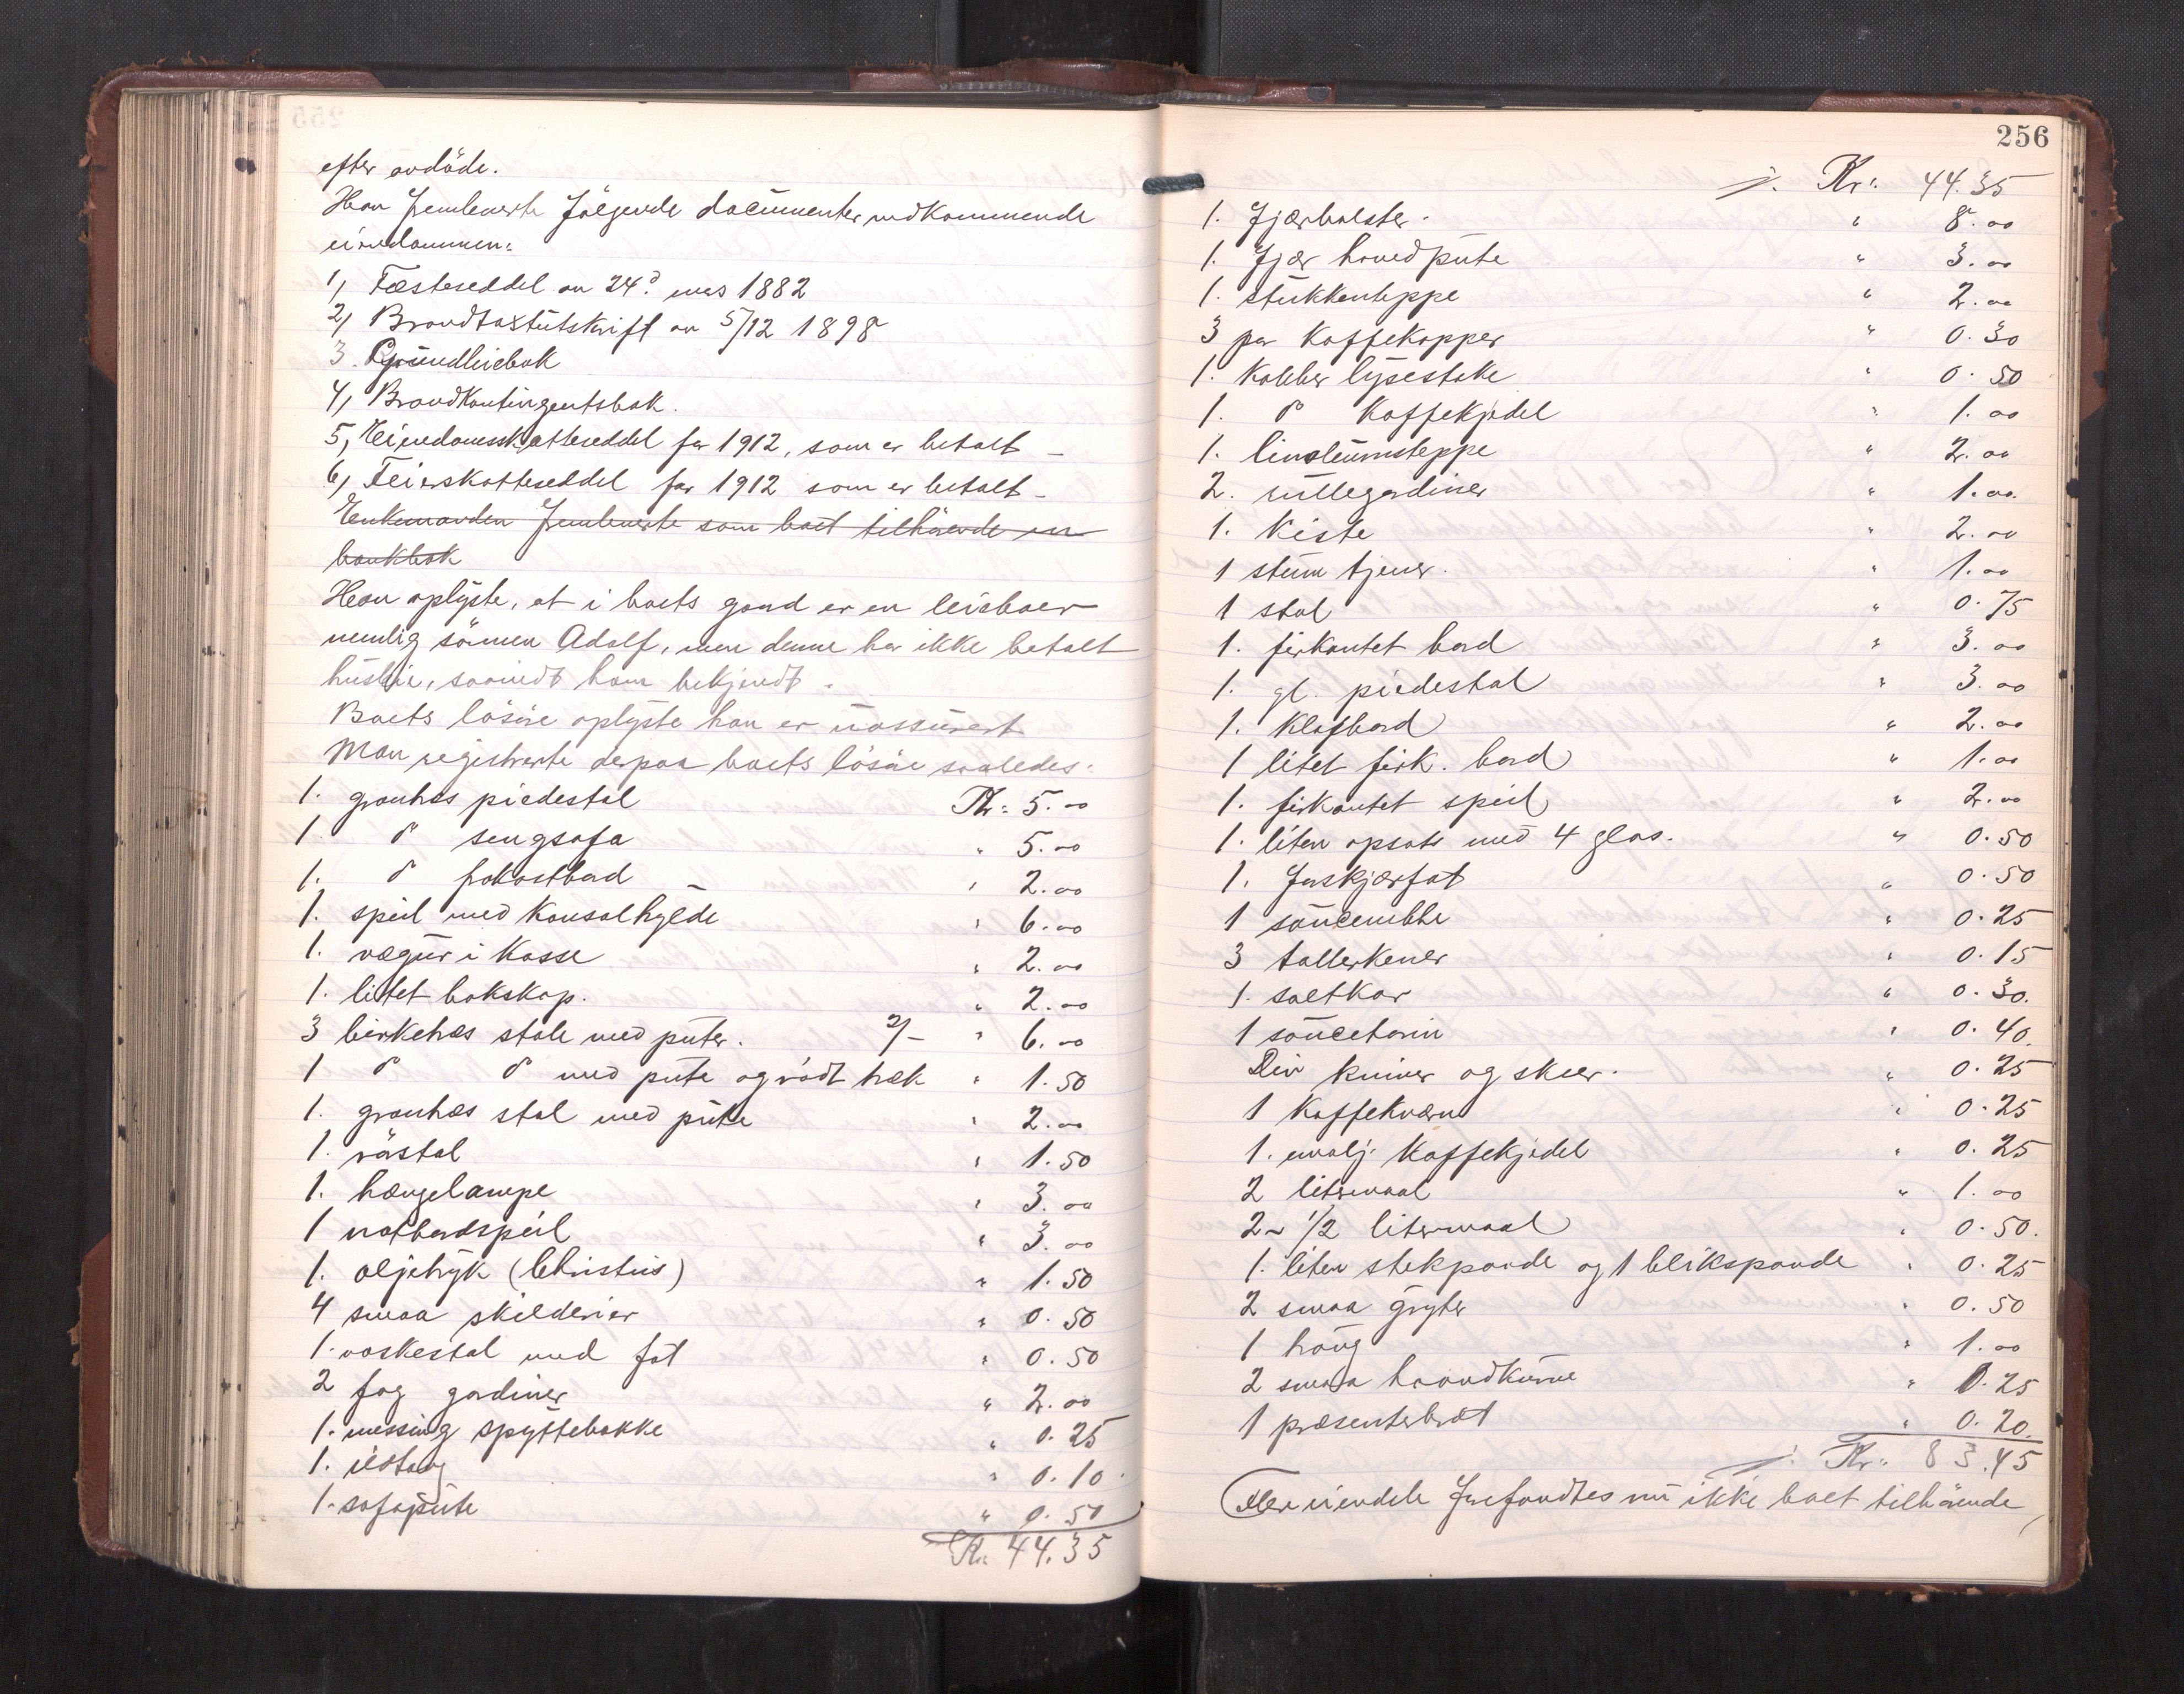 efter avdöde.
Han fremleverte følgende documenter vedkommende
eiendommen:
1, Fæsteseddel av 24de mars 1882
2, Brandtakstutskrift av 5/12 1898
3. Grundleiebok
4, Brandkontingentsbok.
5, Eiendomsskatteseddel for 1912, som er betalt –
6, Feierskatteseddel for 1912 som er betalt –
Enkemanden fremleverte som boet tilhörende en
bankbok
Han oplyste, at i boets gaard er en leieboer
nemlig sönnen Adolf, men denne har ikke betalt
husleie, saavidt ham bekjendt.
Boets lösöre oplyste han er uassurert
Man registrerte derpaa boets lösöre saaledes:
1. grauhæs piedestal Kr: 5.00
1. do sengsofa " 5.00
1. do frokostbord " 2.00
1. speil med konsolhylde " 6.00
1. vægur i kasse " 2.00
1. litet bokskap. " 2.00
3 birkehæs stole med puter. 2/– " 6.00
1 do do med pute og rödt træk " 1.50
1. grauhæs stol med pute " 2.00
1. råstol " 1.50
1. hængelampe " 3.00
1 natbordspeil " 3.00
1. oljetryk (Christus) " 1.50
4 smaa skilderier " 0.50
1. vaskestol med fat " 0.50
2 fag gardiner " 2.00
1. messing spyttebakke " 0.25
1. ildtang " 0.10
1. sofapute " 0.50
Kr: 44.35
256
Kr: 44.35
1. fjærbolster. " 8.00
1. fjær hovedpute " 3.00
1. stukkenteppe " 2.00
3 par kaffekopper " 0.30
1. kobber lysestake " 0.50
1. do kaffekjedel " 1.00
1. linoleumsteppe " 2.00
2. rullegardiner " 1.00
1. kiste " 2.00
1 stum tjener. " 1.00
1 stol " 0.75
1. firkantet bord " 3.00
1. gl. piedestal " 3.00
1. klafbord " 2.00
1 litet firk. bord " 1.00
1. firkantet speil " 2.00
1. liten opsats med 4 glas. " 0.50
1. forskjærfat " 0.50
1 saucenebbe " 0.25
3 tallerkener " 0.15
1. saltkar " 0.30.
1 sauceterin " 0.40.
Div kniver og skeer. " 0.25
1 kaffekværn " 0.25
1. emalj. kaffekjedel " 0.25
2 litermaal " 1.00
2 – 1/2 litermaal " 0.50.
1. liten stekpande og 1 blikspande " 0.25
2 smaa gryter " 0.50
1 traug " 1.00
2 smaa haandkurve " 0.25
1 præsenterbræt " 0.20.
Kr: 83.45
Flere eiendele forefandtes nu ikke boet tilhörende,